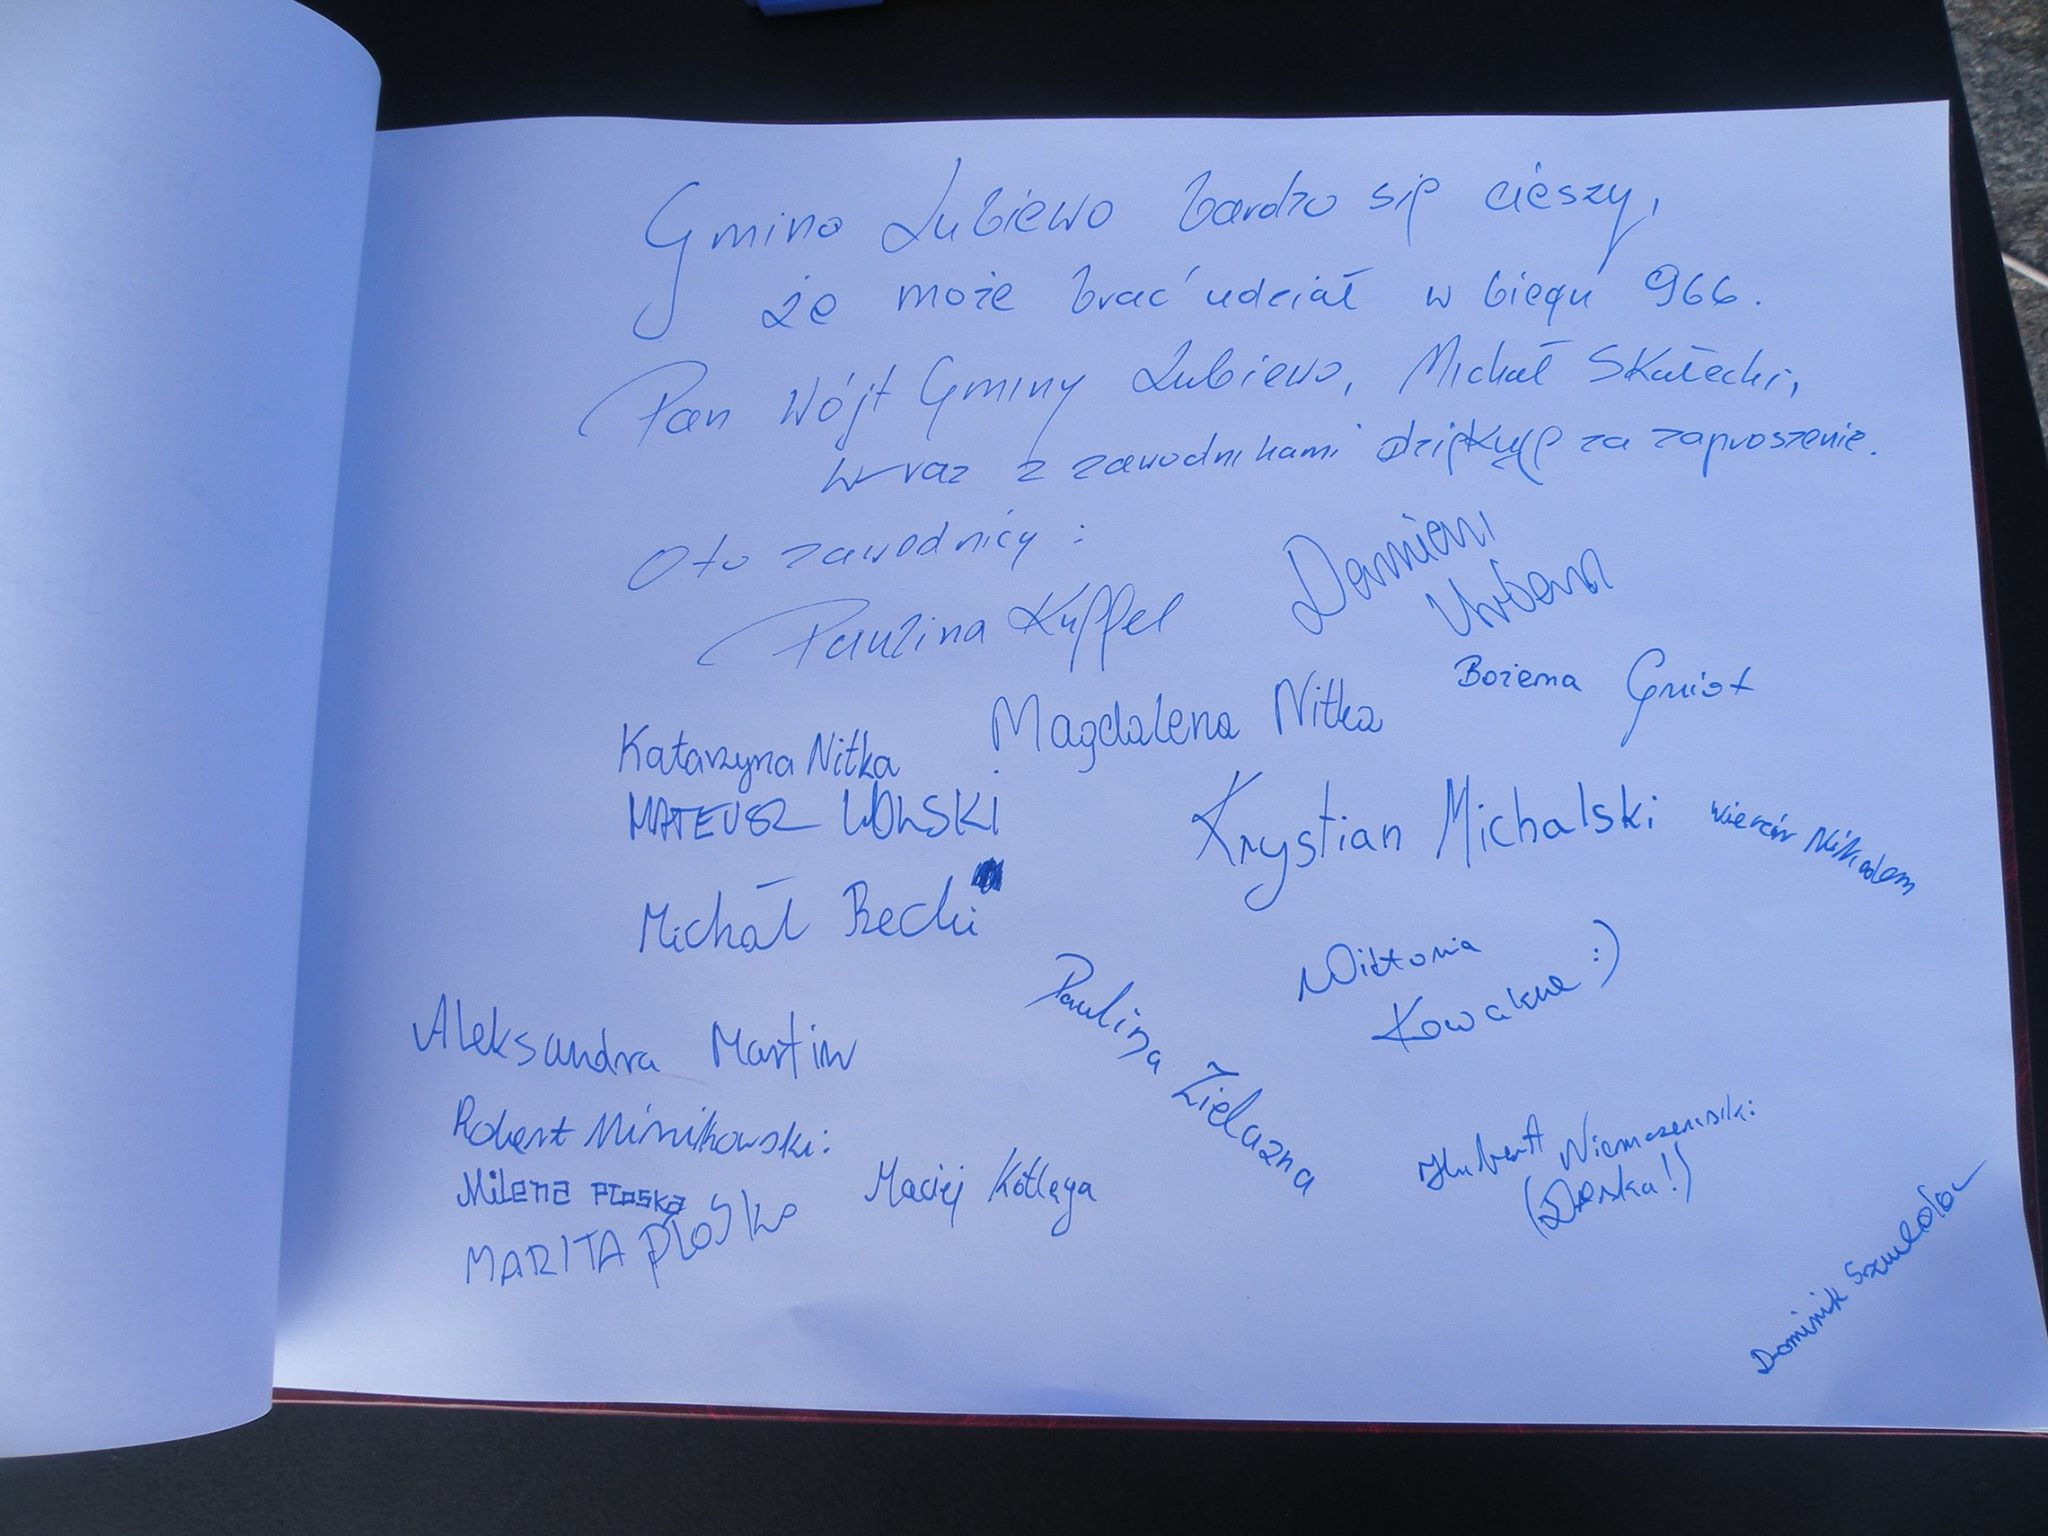 Gmina Lubiewo bardzo się cieszy,
że może brać udział w biegu 966.
Pan Wójt Gminy Lubiewo, Michał Skałecki,
wraz z zawodnikami dziękuję za zaproszenie.
Oto zawodnicy:
Paulina Kuffel
Damian
Urban
Bożena Gniot
Katarzyna Nitka
Magdalena Nitka
MATEUSZ WOLSKI
Krystian Michalski
Nikodem
Michał Recki
Wiktoria
:)
Aleksandra Martin
Paulina Żielazna
Robert Minikowski:
Milena Płoska
Maciej Kotlęga
MARITA Płoska
Hubert
Dominik